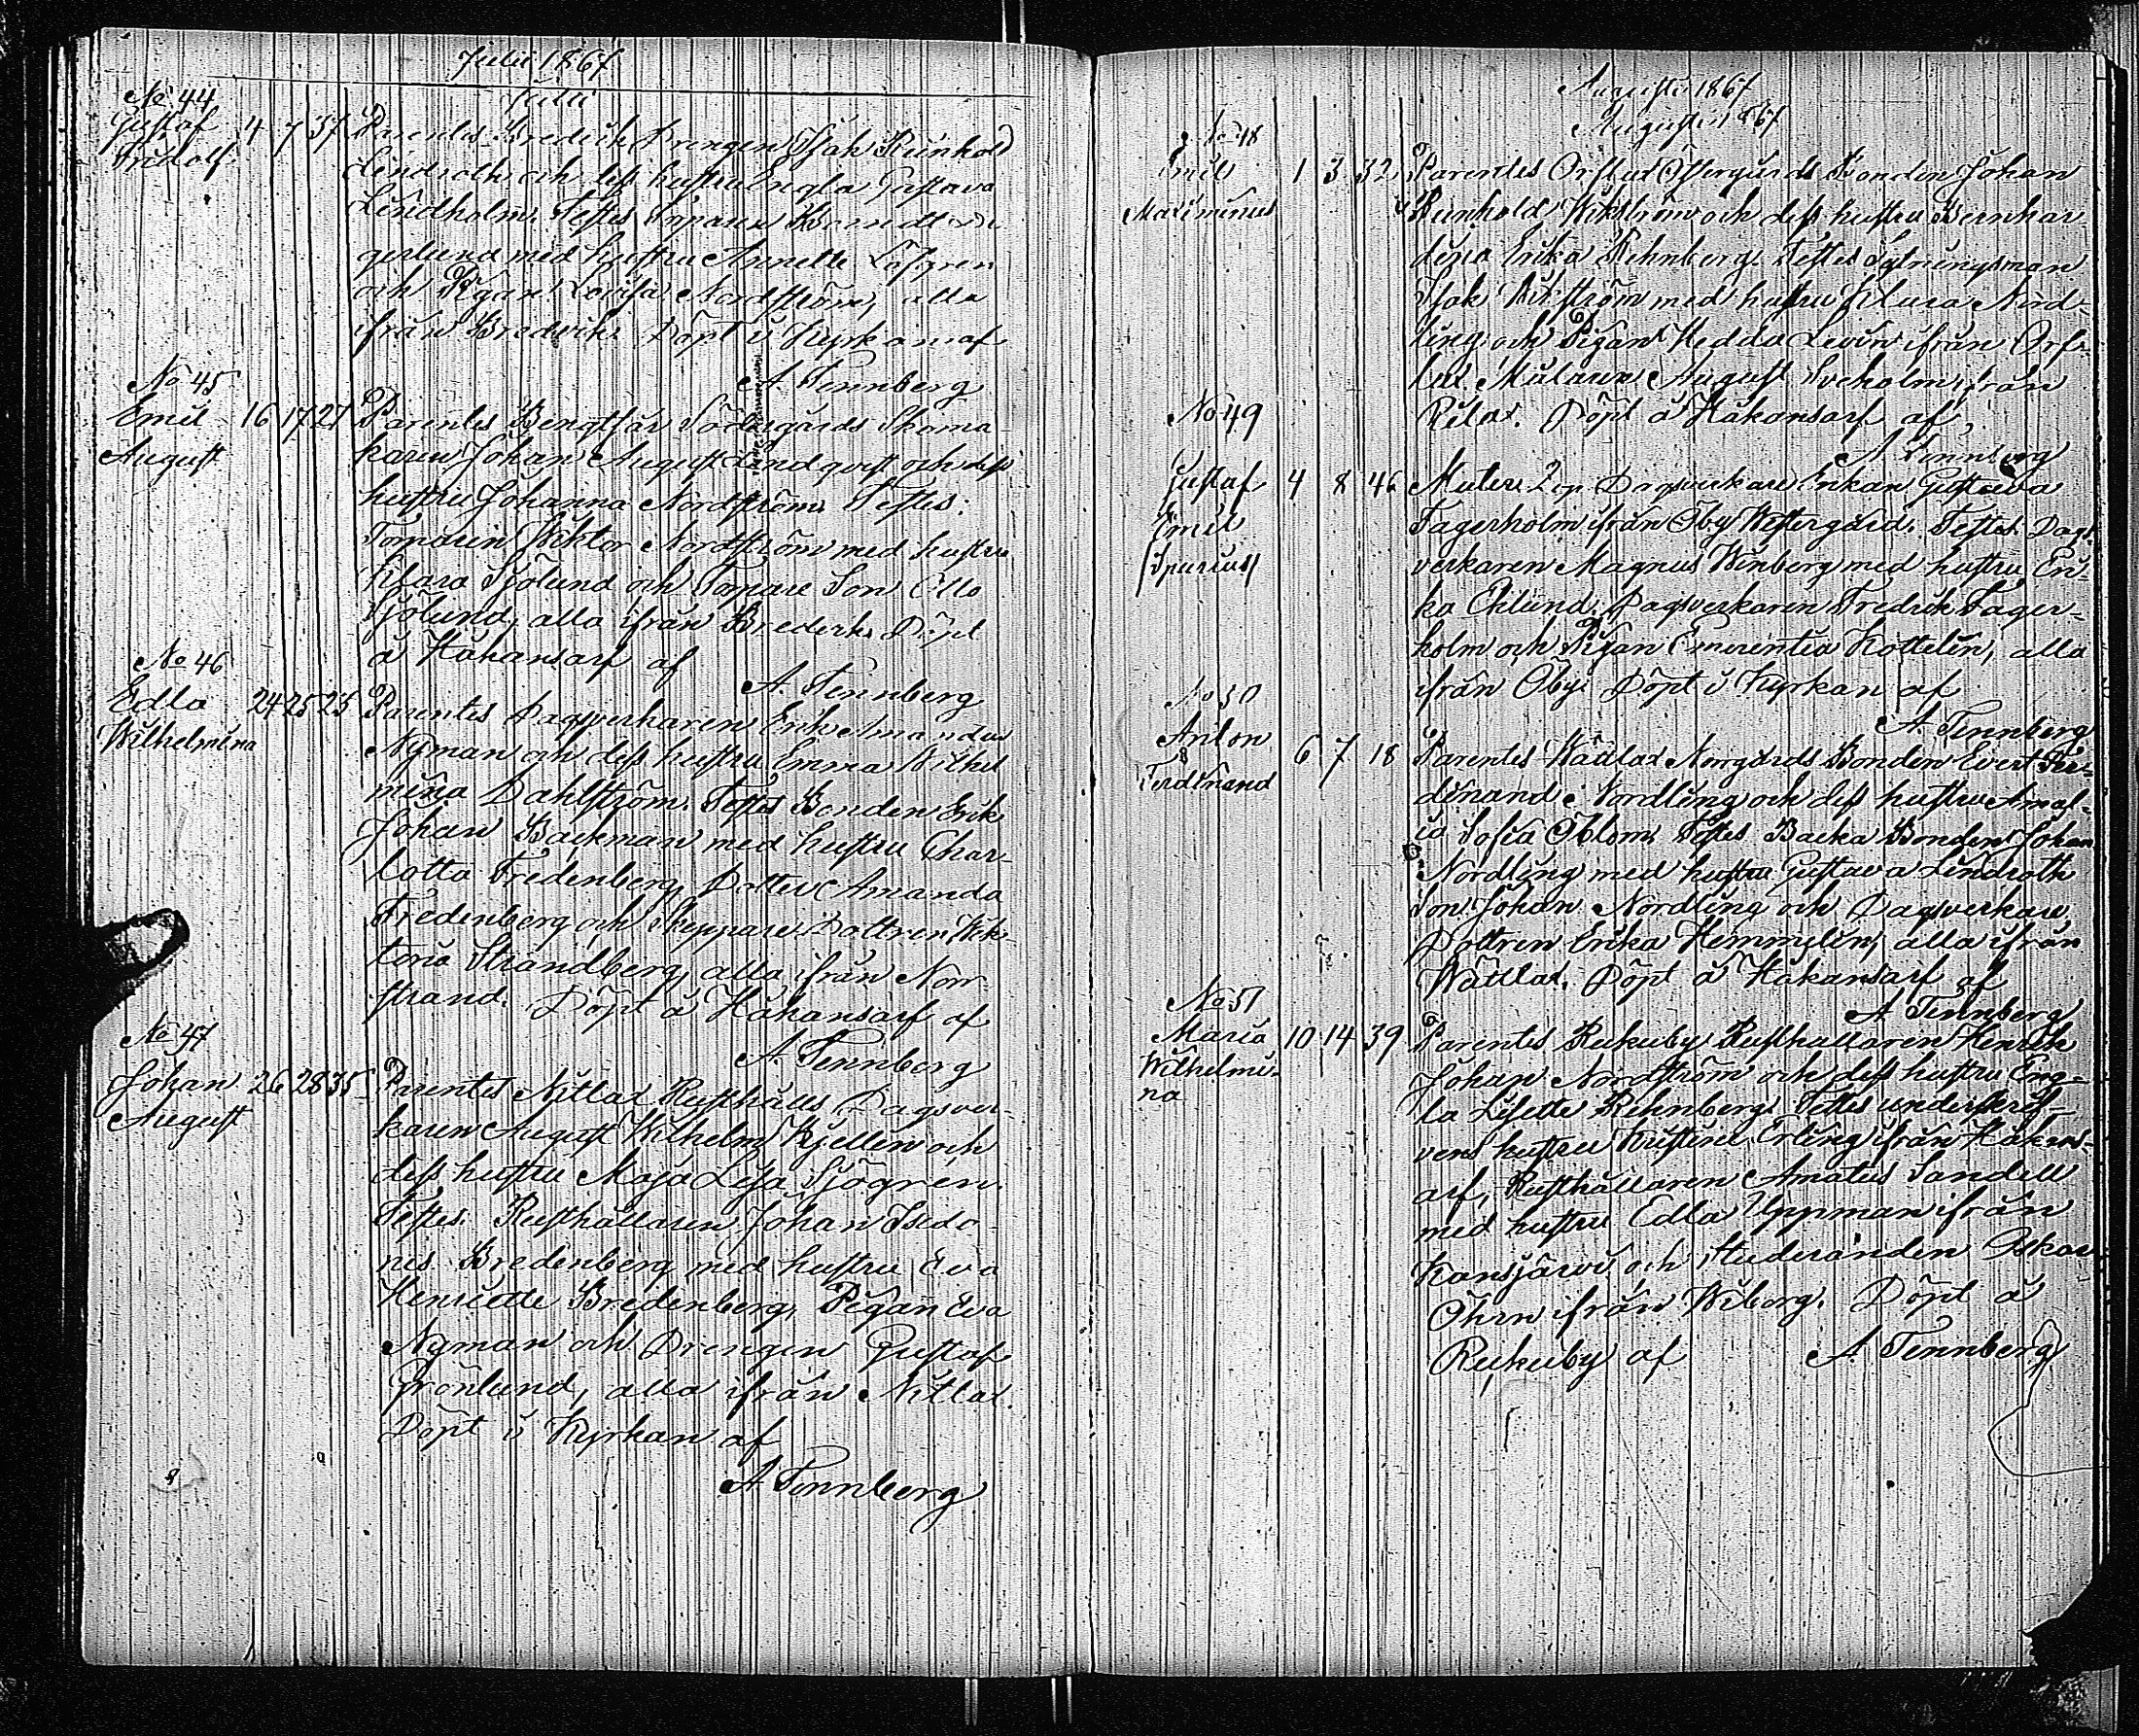 Julii 1867
Julii
No 44
Gustaf 4 7 37 Parentes Bredvik Drengen Isak Reinhold
Fridolf Lindroth och dess hustru Engla Gustava
Lindholm. Testes Torparen
gerlund med hustru Annette Löfgren
och Pigan Lovisa Nordström, alla
ifrån Bredvik. Döpt i Kyrkan af
A. Tennberg
No 45
Emil 16 17 27 Parentes Bengtsår Södergårds Skoma
August karen Johan August Landqvist och dess
hustru Johanna Nordström. Testes:
Torparen Wiktor Nordström med hustru
Klara Sjölund och Torpare Son Otto
Sjölund, alla ifrån Bredvik. Döpt
å Håkansarf af
A. Tennberg
No 46
Edla 24 25 25 Parentes Dagsverkaren Erik Amandus
Wilhelmina Nyman och dess hustru Emma Wilhel
mina Dahlström. Testes Bonden Erik
Johan Backman med hustru Char-
lotta Fredenberg, Dotter Amanda
Fredenberg och Skeppare Dottren Wik-
toria Strandberg, alla ifrån Norr
strand. Döpt å Håkansarf af
A. Tennberg
No 47
Johan 26 28 35 Parentes Nitlax Rusthålls Dagsver-
August karen August Wilhelm Kjellin och
dess hustru Maja Lisa Sjögren.
Testes: Rusthållaren Johan Isido-
rus Bredenberg med hustru Eva
Henriette Bredenberg, Pigan Eva
Nyman och Drengen Gustaf
Grönlund, alla ifrån Nitlax.
Döpt i Kyrkan af
A. Tennberg
Augusti 1867
Augusti 1867
No 48
Emil 1 3 32 Parentes Orslax Östergårds Bonden Johan
Maximinus Reinhold Wikström och dess hustru Bernhar
dina Erika Rehnberg. Testes Sytningsman
Isak Wikström med hustru Klara Nord-
ling och Pigan Hedda Levin ifrån Ors-
lax, Målaren August Sveholm ifrån
Rilax. Döpt å Håkansarf af
A. Tennberg
No 49
Gustaf 4 8 46 Mater Dagsverkare Enkan Gustava
Emil Fagerholm ifrån Öby Westergård. Testes Dags
(Spurius) verkaren Magnus Winberg med hustru Eri-
ka Eklund, Dagsverkaren Fredrik Fager-
holm och Pigan Emerentia Kottelin, alla
ifrån Öby. Döpt i Kyrkan af
A. Tennberg
No 50
Anton 6 7 18 Parentes Wättlax Norrgårds Bonden Evert Fer-
Ferdinand dinand Nordling och dess hustru Amal-
ia Sofia Öblom. Testes Backa Bonden Johan
Nordling med hustru Gustava Lindroth
Son Johan Nordling och Dagsverkare
Dottren Erika Hemmelin, alla ifrån
Wättlax. Döpt å Håkansarf af
A. Tennberg
No 51
Maria 10 14 39 Parentes Rukuby Rusthållaren Henrik
Wilhelmi- Johan Nordström och dess hustru Eng-
na la Lisette Rehnberg. Testes underskrif-
vens hustru Kristina Erling ifrån Håkans-
arf, Rusthållaren Amatus Sandell
med hustru Edla Uppman ifrån
Kansjärvi och Studeranden Oskar
Öhrn ifrån Wiborg. Döpt å
Rukuby af A. Tennberg